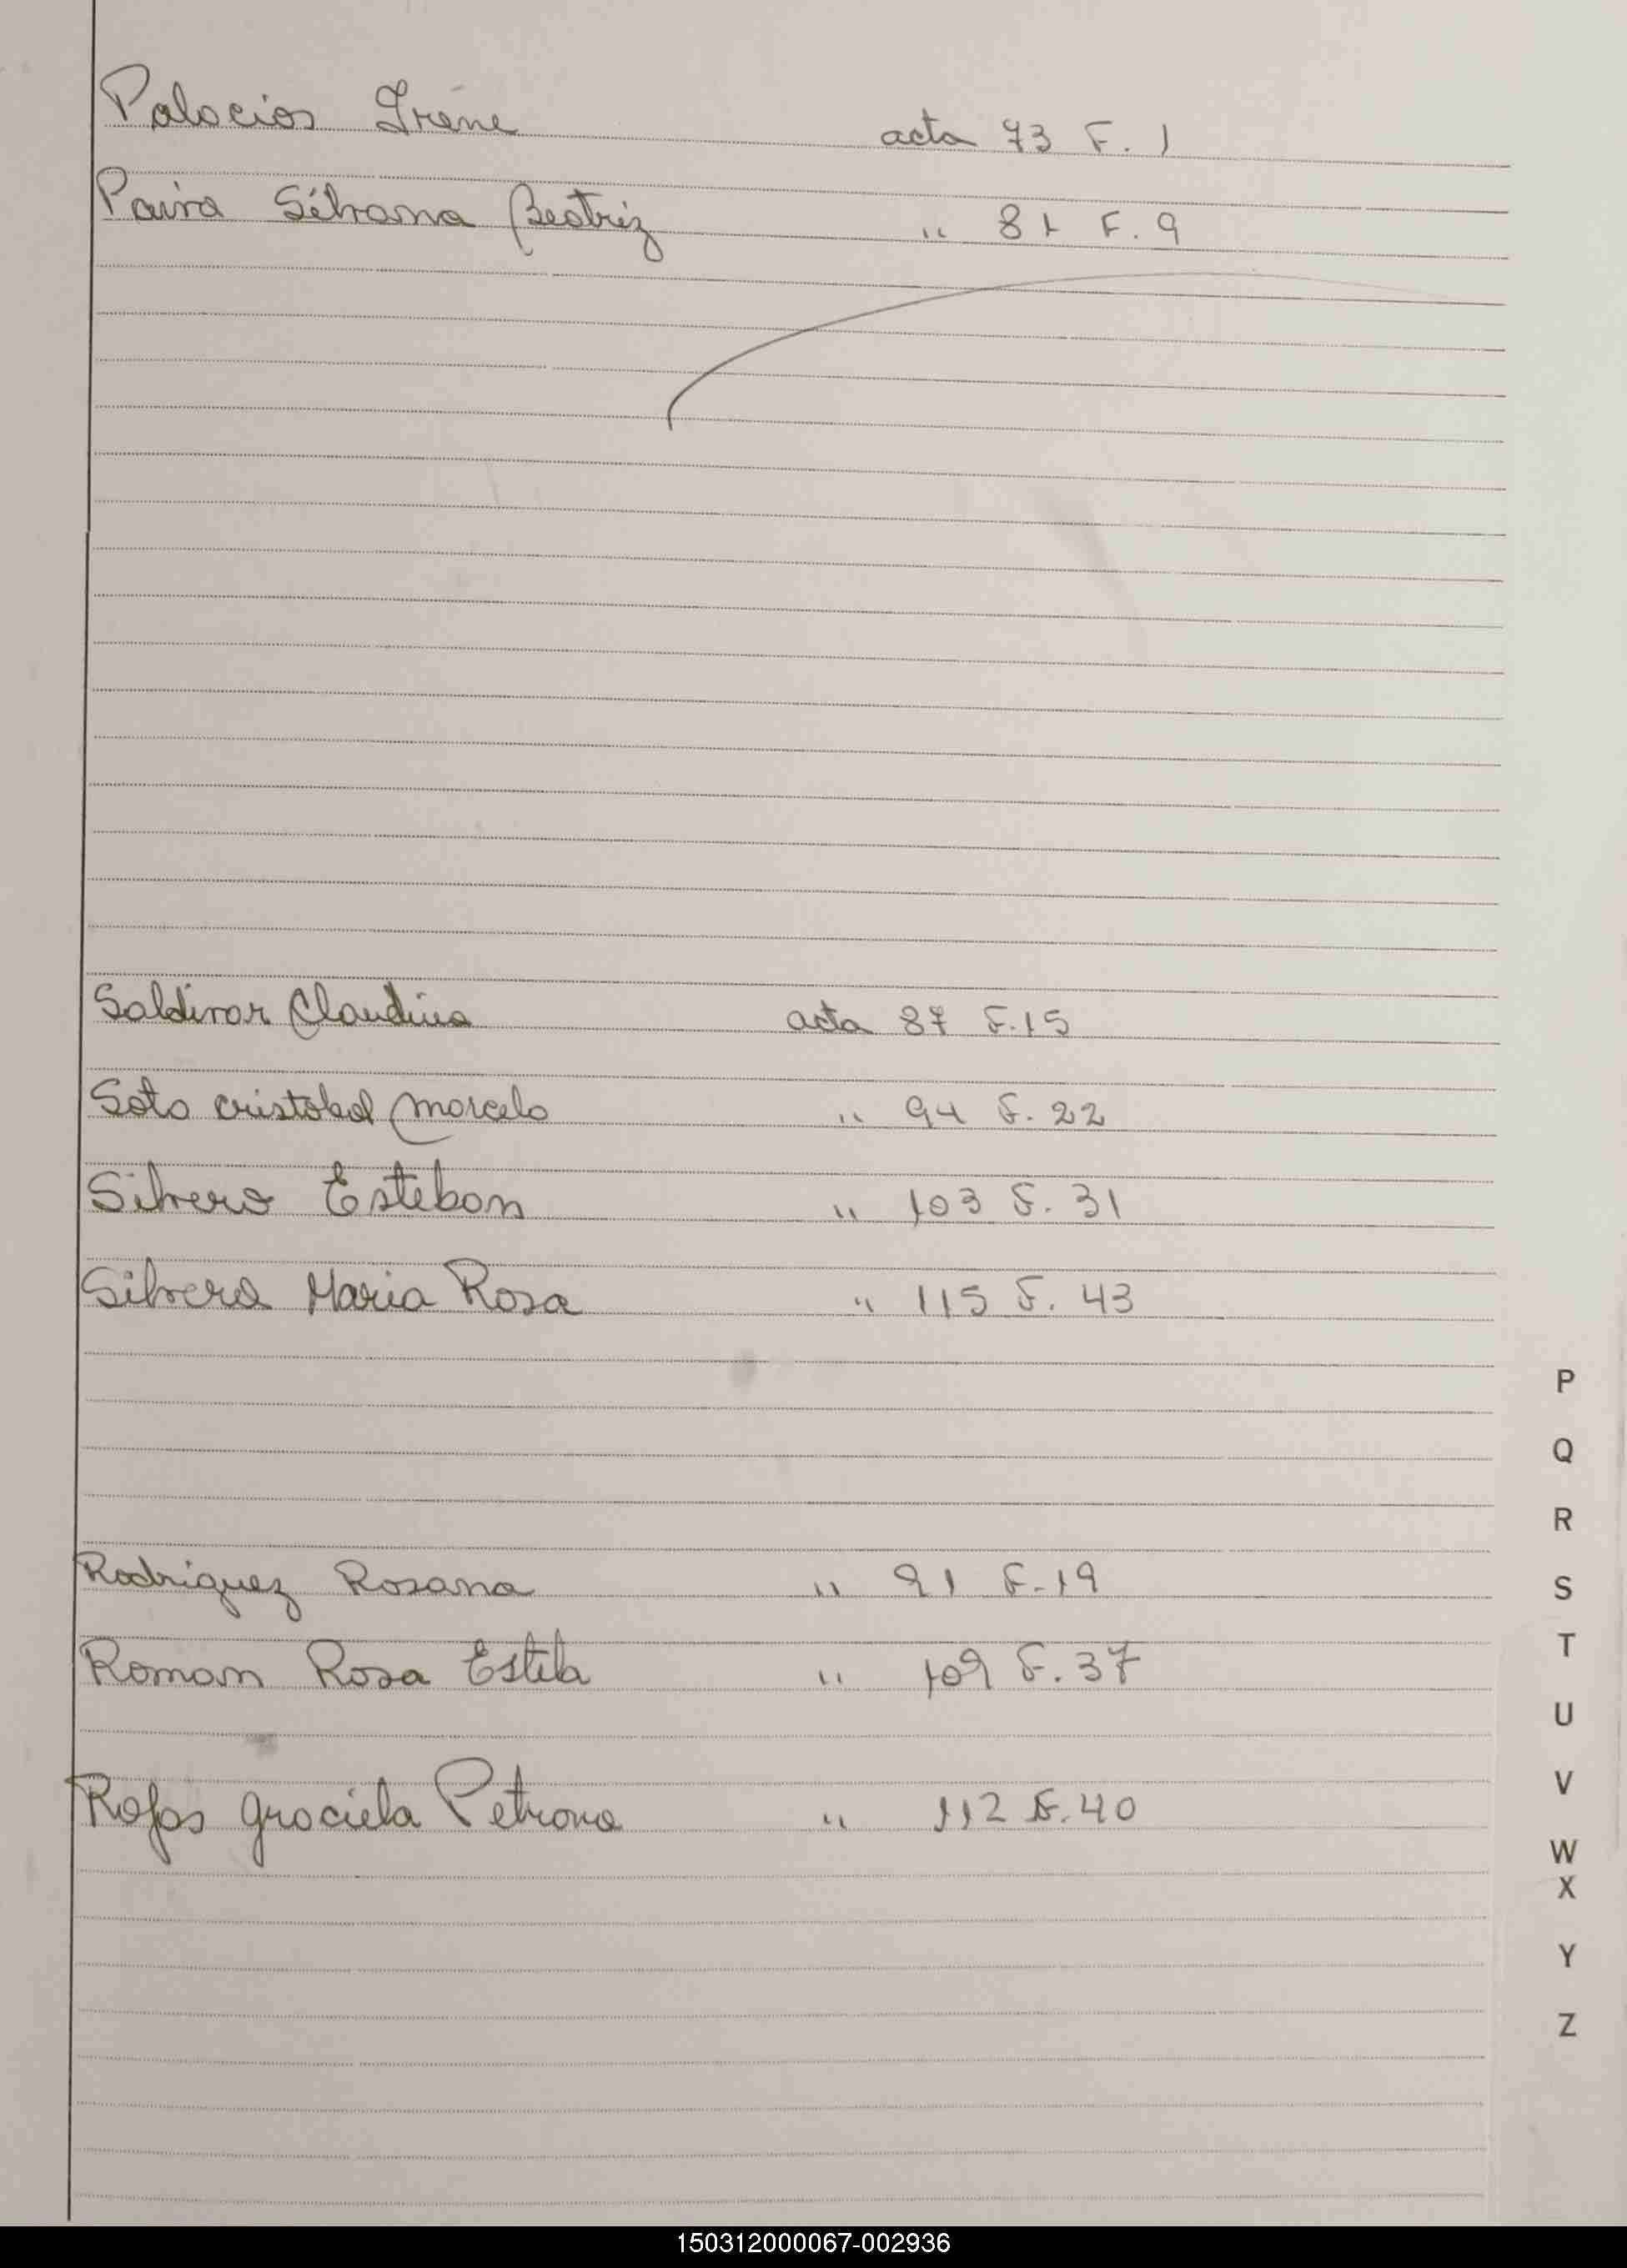 Palacios Irene acta 73 F. 1
Paiva Silvana Beatriz " 81 F. 9
Saldivar Claudina acta 87 F. 15
Soto cristobal marcelo " 94 F. 22
Silvero Esteban " 103 F. 31
Silvera Maria Rosa " 115 F. 43
Rodriguez Rosana " 91 F. 19
Roman Rosa Estela " 109 F. 37
Rojas graciela Petrona " 112 F. 40
P
Q
R
S
T
U
V
W
X
Y
Z
150312000067-002936